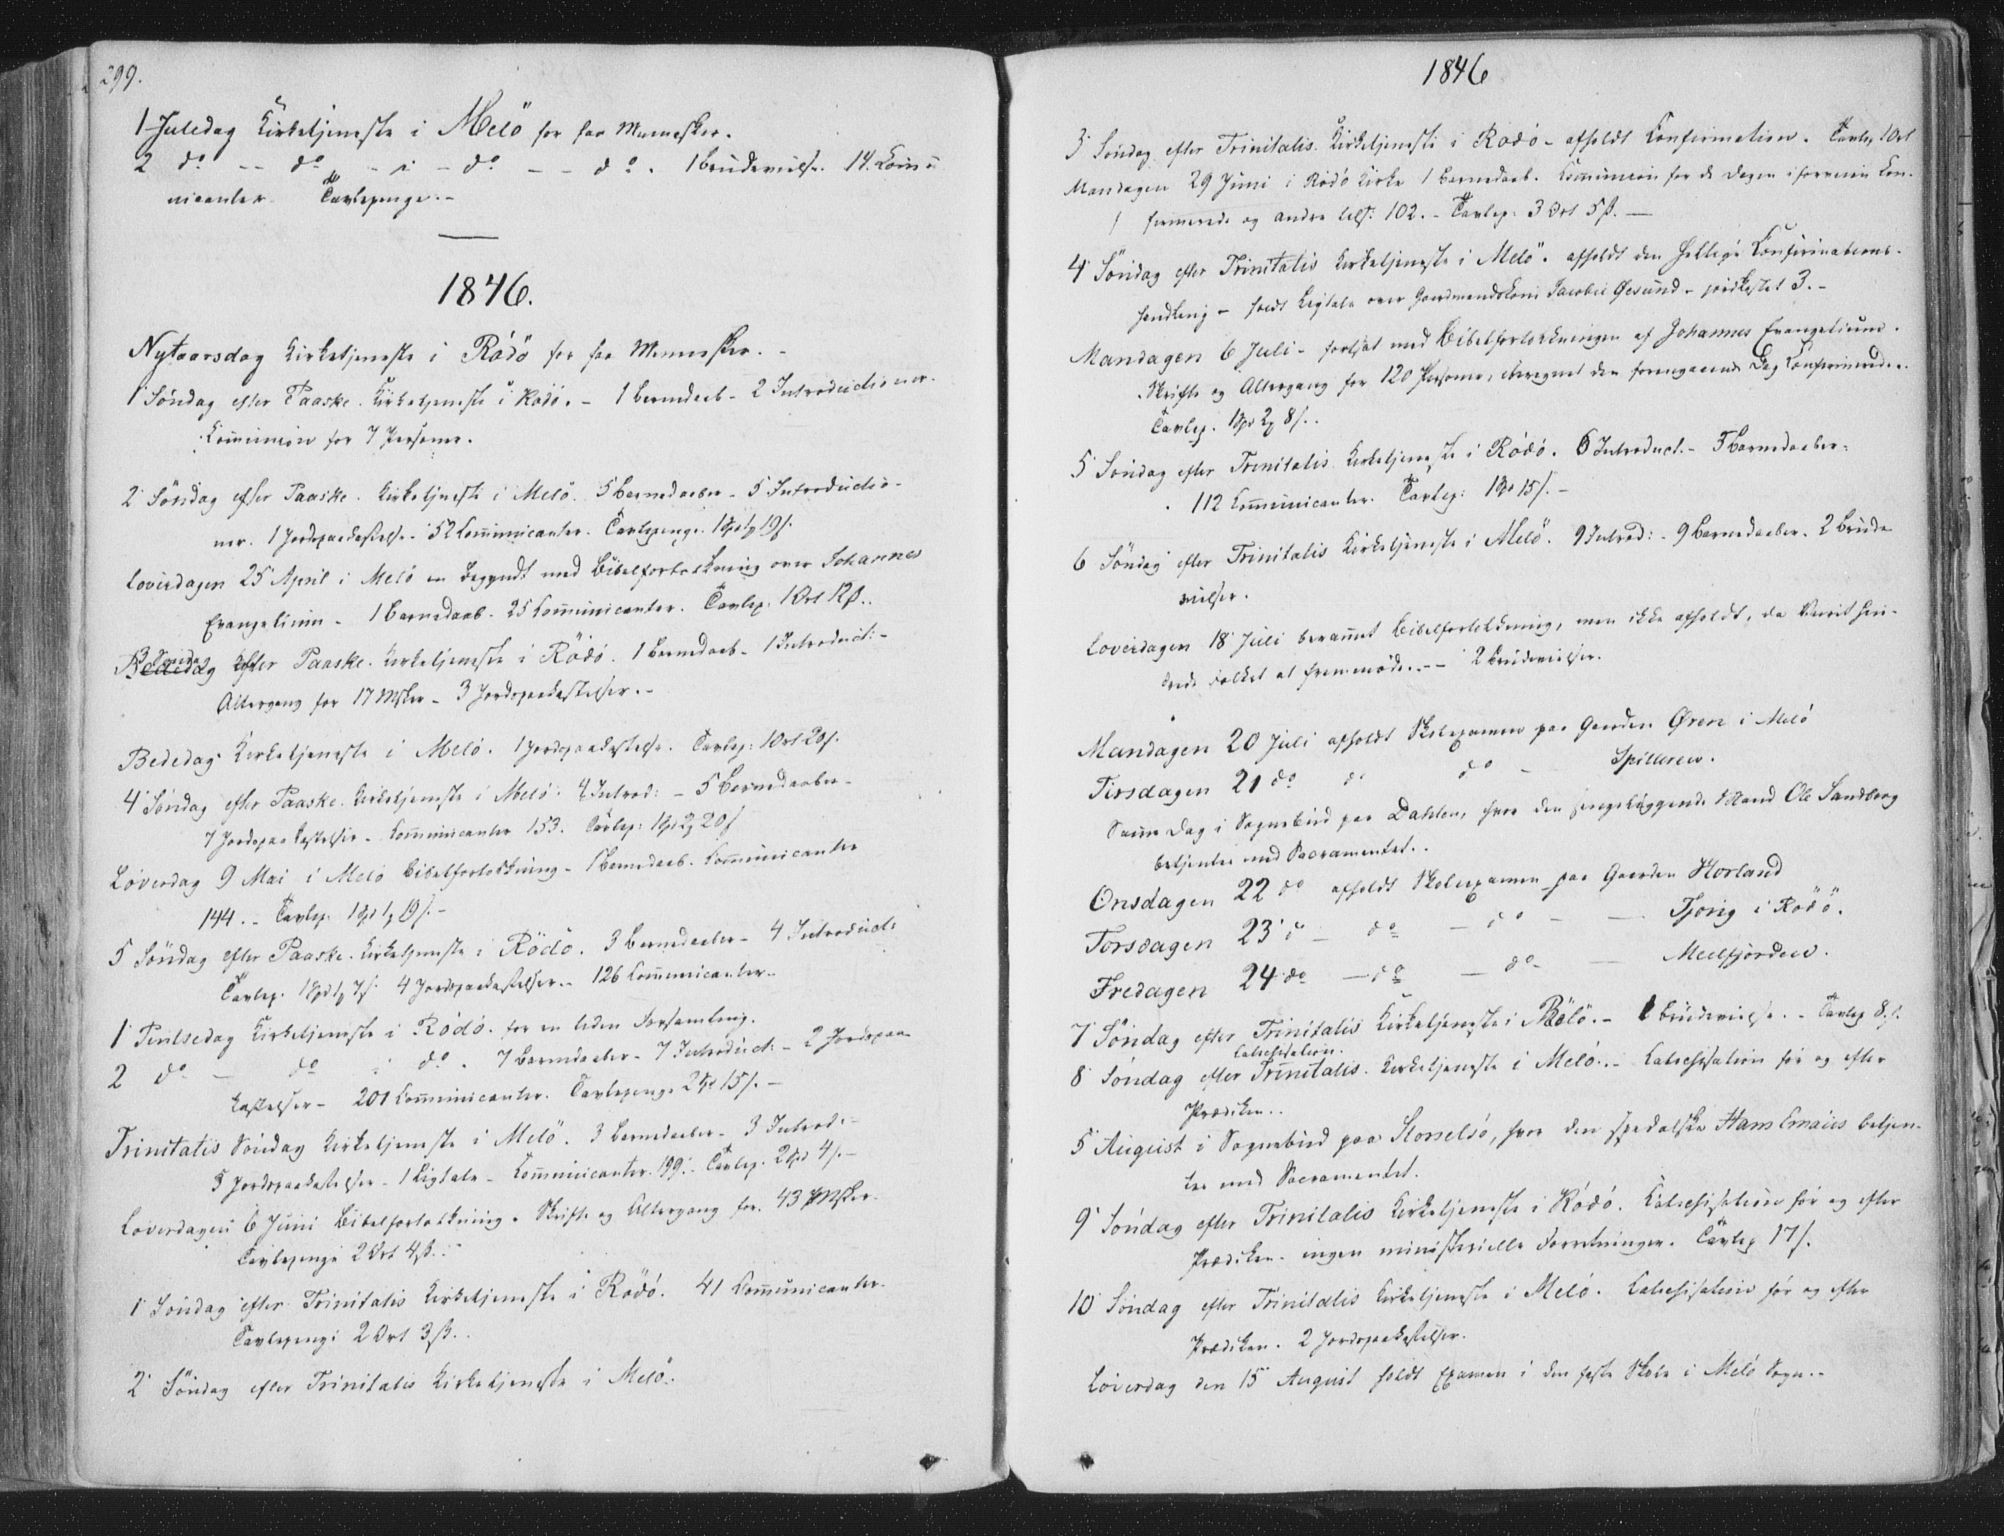 299.
1 Juledag Kirketjeneste i Melö for faa Mennesker.
2 do -- do - i - do -- do. 1 Brudevielse. 14 Comu
nicanter. Tavlepenge.-
1846.
Nytaarsdag Kirketjeneste i Rödö for faa Mennesker. -
1 Söndag efter Paaske. Kirketjeneste i Rödö. - 1 barnedaab - 2 Introductioner.
Communion for 7 Personer.
2 Söndag efter Paaske. Kirketjeneste i Melö. 5 barnedaaber - 5 Introductio-
ner. 1 Jordpaakastelse - 52 Communicanter. Tavlepenge.
Löverdagen 25 April i Melö en begyndt med Bibelfortolkning over Johannes
Evangelium - 1 barnedaab. 25 Communicanter. Tavlep: 1 Ort 12 ß..
3 Söndag efter Paaske. Kirketjeneste i Rödö. 1 barnedaab - 1 Introduct: -
Altergang for 17 Msker - 3 Jordpaakastelser. -
Bededag Kirketjeneste i Melö. 1 Jordpaakastelse. Tavlep: 1 Ort 20 ß.
4 Söndag efter Paaske. Kirketjeneste i Melö. 4 Introd: - 5 Barnedaaber -
7 Jordpaakastelser - Communicanter 153. Tavlep:
Löverdag 9 Mai i Melö Bibelfortolkning - 1 barnedaab. Communicanter
144. - Tavlep:
5 Söndag efter Paaske. Kirketjeneste i Rödö. 3 barnedaaber - 4 Introduct:
Tavlep. 4 Jordpaakastelser. - 126 Communicanter. -
1 Pintsedag Kirketjeneste i Rödö. for en liden Forsamling.
2 do - do : do. 7 barnedaaber - 7 Introduct: - 2 Jordpaa-
kastelser - 201 Communicanter. Tavlepenge 2 Spd 15 ß. -
Trinitatis Söndag Kirketjeneste i Melö. 3 barnedaaber - 3 Introd: -
5 Jordpaakastelser - 1 Ligtale - Communicanter 199. - Tavlep. 2 Spd 4 ß. -
Löverdagen 6 Juni Bibelfortolkning. Skrifte og Altergang for 43 Msker.
Tavlepenge 2 Ort 4 ß. -
1 Söndag efter Trinitatis Kirketjeneste i Rödö. 41 Communicanter.
Tavlepenge 2 Ort 3 ß..
2 Söndag efter Trinitatis Kirketjeneste i Melö.
1846
3 Söndag efter Trinitatis. Kirketjeneste i Rödö - afholdt Confirmation. Tavlep 1 Ort
Mandagen 29 Juni i Rödö Kirke 1 barnedaab. Communion for de Dagen i forveien Con-
firmerede og andre tils. 102. - Tavlep: 3 Ort 5 ß. -
4 Söndag efter Trinitatis Kirketjeneste i Melö. afholdt den hellige Confirmations-
handling - holdt Ligtale over Gaardmandskone Jacobie Gesund - jordkastet 3. -
Mandagen 6 Juli - fortsat med Bibelfortolkningen af Johannes Evangelium.
Skrifte og Altergang for 120 Personer, iberegnet den foregaaende Dag Confirmerede.
Tavlep.
5 Söndag efter Trinitatis Kirketjeneste i Rödö. 6 Introduct. - 5 barnedaaber -
112 Communicanter. Tavlep: 1 Spd 15 ß. -
6 Söndag efter Trinitatis Kirketjeneste i Melö. 9 Introd: - 9 barnedaaber - 2 Brude
vielser.
Löverdagen 18 Juli berammet Bibelfortolkning, men ikke afholdt, da Veirit hin-
drede Folket at fremmöde. -- 2 Brudevielser.
Mandagen 20 Juli afholdt Skoleexamen paa Gaarden Øren i Melö
Tirsdagen 21 do do do - Spilleren.
Samme Dag i Sognebud paa Dahlen, hvor den sengeliggende Mand Ole Sandberg
betjentes med Sacramentet..
Onsdagen 22 do afholdt Skoleexamen paa Gaarden Horland
Torsdagen 23 do - do - do - - Tjong i Rödö.
Fredagen 24 do - do - do - - Melfjorden.
7 Söndag efter Trinitatis Kirketjeneste i Rödö. - 1 Brudevielse. - Tavlep 8 ß.
Catechisation.
8 Söndag efter Trinitatis. Kirketjeneste i Melö. - Catechisation för og efter
Prædiken..
5 August i Sognebud paa Storselsö, hvor den spedalske Hans Emaus betjen-
tes med Sacramentet.
9 Söndag efter Trinitatis Kirketjeneste i Rödö. Catechisation för og efter
Prædiken - ingen ministerielle Forretninger. Tavlep 17 ß.
10 Söndag efter Trinitatis Kirketjeneste i Melö. Catechisation för og efter
Prædiken. 2 Jordpaakastelser.
Löverdag den 15 August holdt Examen i den faste Skole i Melö Sogn. -